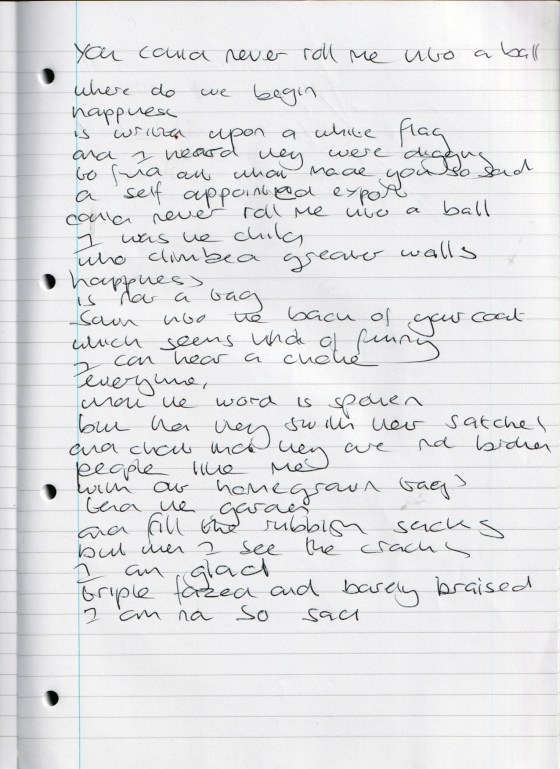 You could never roll me into a ball
where do we begin
happiness
is written upon a white flag
and I heard they were digging
to find out what made you so sad
a self appointed expert
could never roll me into a ball
I was the child
who climbed greater walls
happiness
is not a tag
sewn into the back of your coat
which seems kind of funny
I can hear a choke
everytime,
when the word is spoken
but then they swish their satchel
and chant that they are not broken
people like me
with our homegrown tags
tend the garden
and fill the rubbish sacks
but when I see the cracks
I am glad
triple fazed and barely braised
I am not so sad